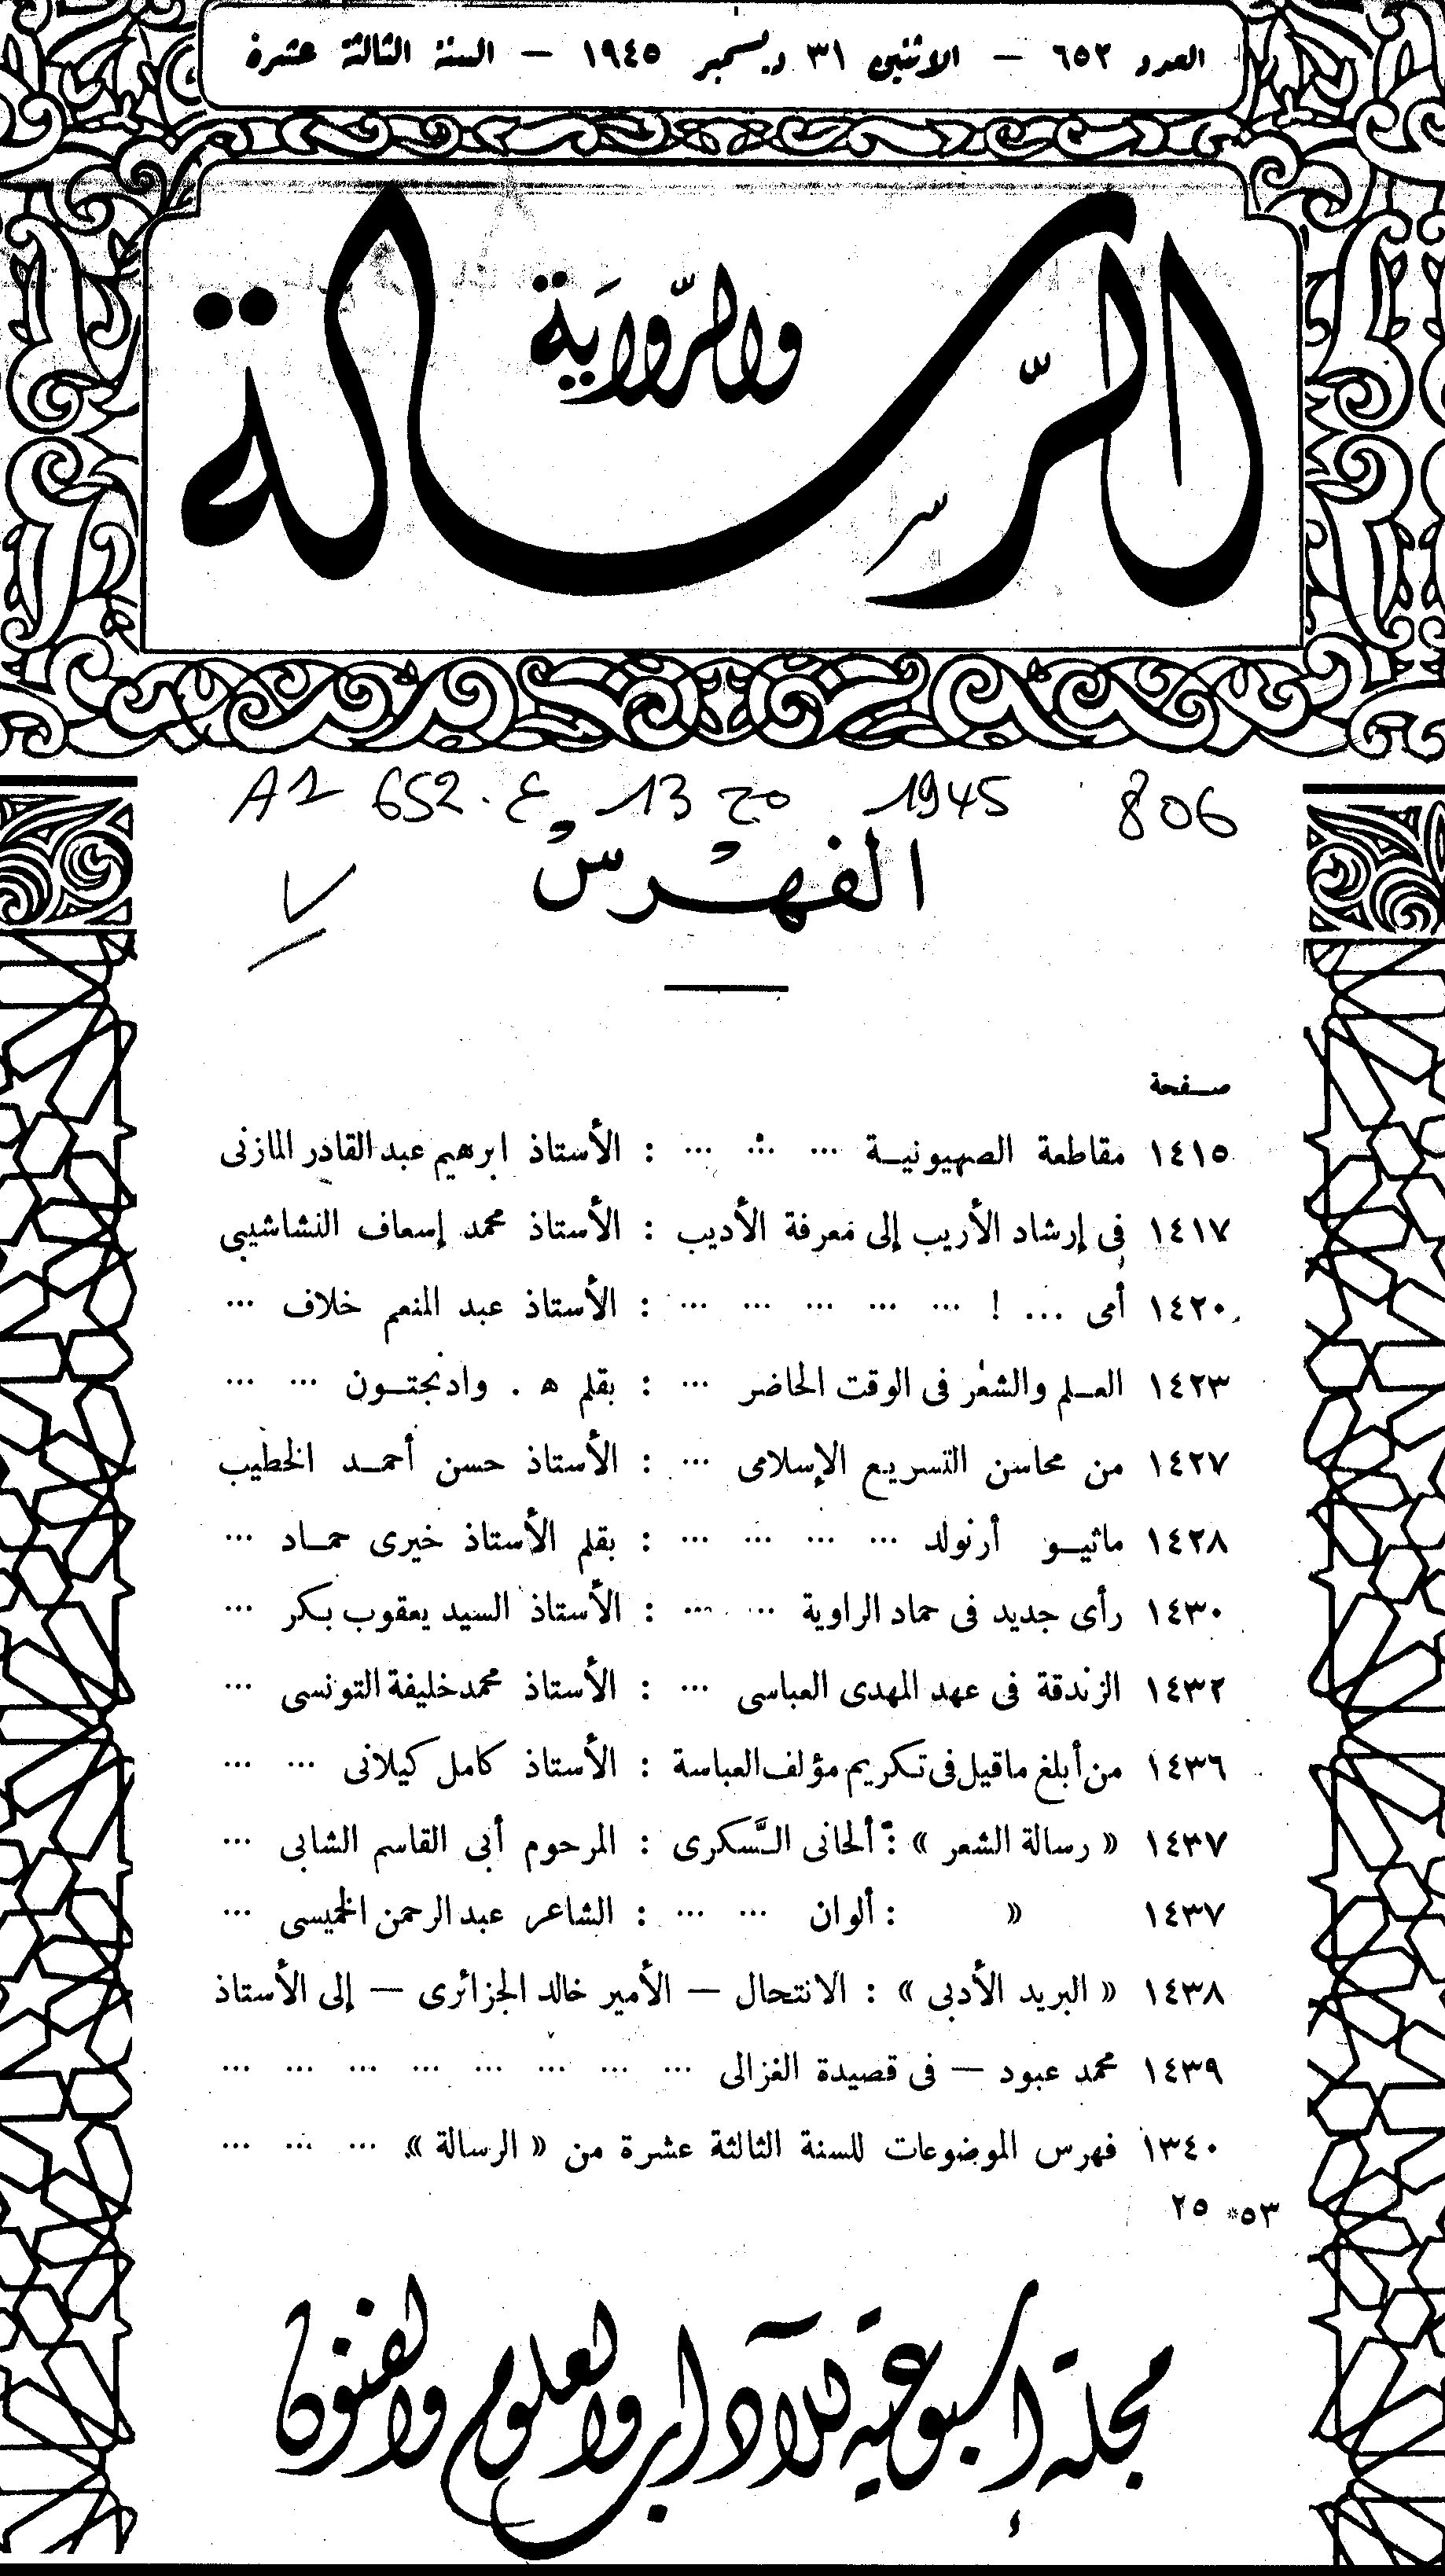 العدد ٦٥٢ — الاثنين ٣١ ديسمبر ١٩٤٥ — السنة الثالثة عشرة
الرسالة
والرّواية
A2 652. ع 13 ج٥ 1945 806
الفهرس
صفحة
١٤١٥ مقاطعة الصهيونية ... ... ... : الأستاذ ابرهيم عبد القادر المازنى
١٤١٧ فى إرشاد الأريب إلى معرفة الأديب : الأستاذ محمد إسعاف النشاشيبى
١٤٢٠ أمى ... ! ... ... ... ... ... : الأستاذ عبد المنعم خلاف ...
١٤٢٣ العلم والشعر فى الوقت الحاضر ... : بقلم ه . وادنجتون ... ...
١٤٢٧ من محاسن التسريع الإسلامى ... : الأستاذ حسن أحمد الخطيب
١٤٢٨ ماثيو أرنولد ... ... ... ... : بقلم الأستاذ خيرى حماد ...
١٤٣٠ رأى جديد فى حماد الراوية ... ... : الأستاذ السيد يعقوب بكر ...
١٤٣٢ الزندقة فى عهد المهدى العباسى ... : الأستاذ محمد خليفة التونسى ...
١٤٣٦ من أبلغ ماقيل فى تكريم مؤلف العباسة : الأستاذ كامل كيلانى ... ...
١٤٣٧ « رسالة الشعر » : ألحانى السَّكرى : المرحوم أبى القاسم الشابى ...
١٤٣٧ « : ألوان ... ... : الشاعر عبد الرحمن الخميسى ...
١٤٣٨ « البريد الأدبى » : الانتحال — الأمير خالد الجزائرى — إلى الأستاذ
١٤٣٩ محمد عبود — فى قصيدة الغزالى ... ... ... ... ... ... ... ...
١٣٤٠ فهرس الموضوعات للسنة الثالثة عشرة من « الرسالة » ... ... ...
٥٣* ٢٥
مجلة أسبوعية للآداب والعلوم والفنون